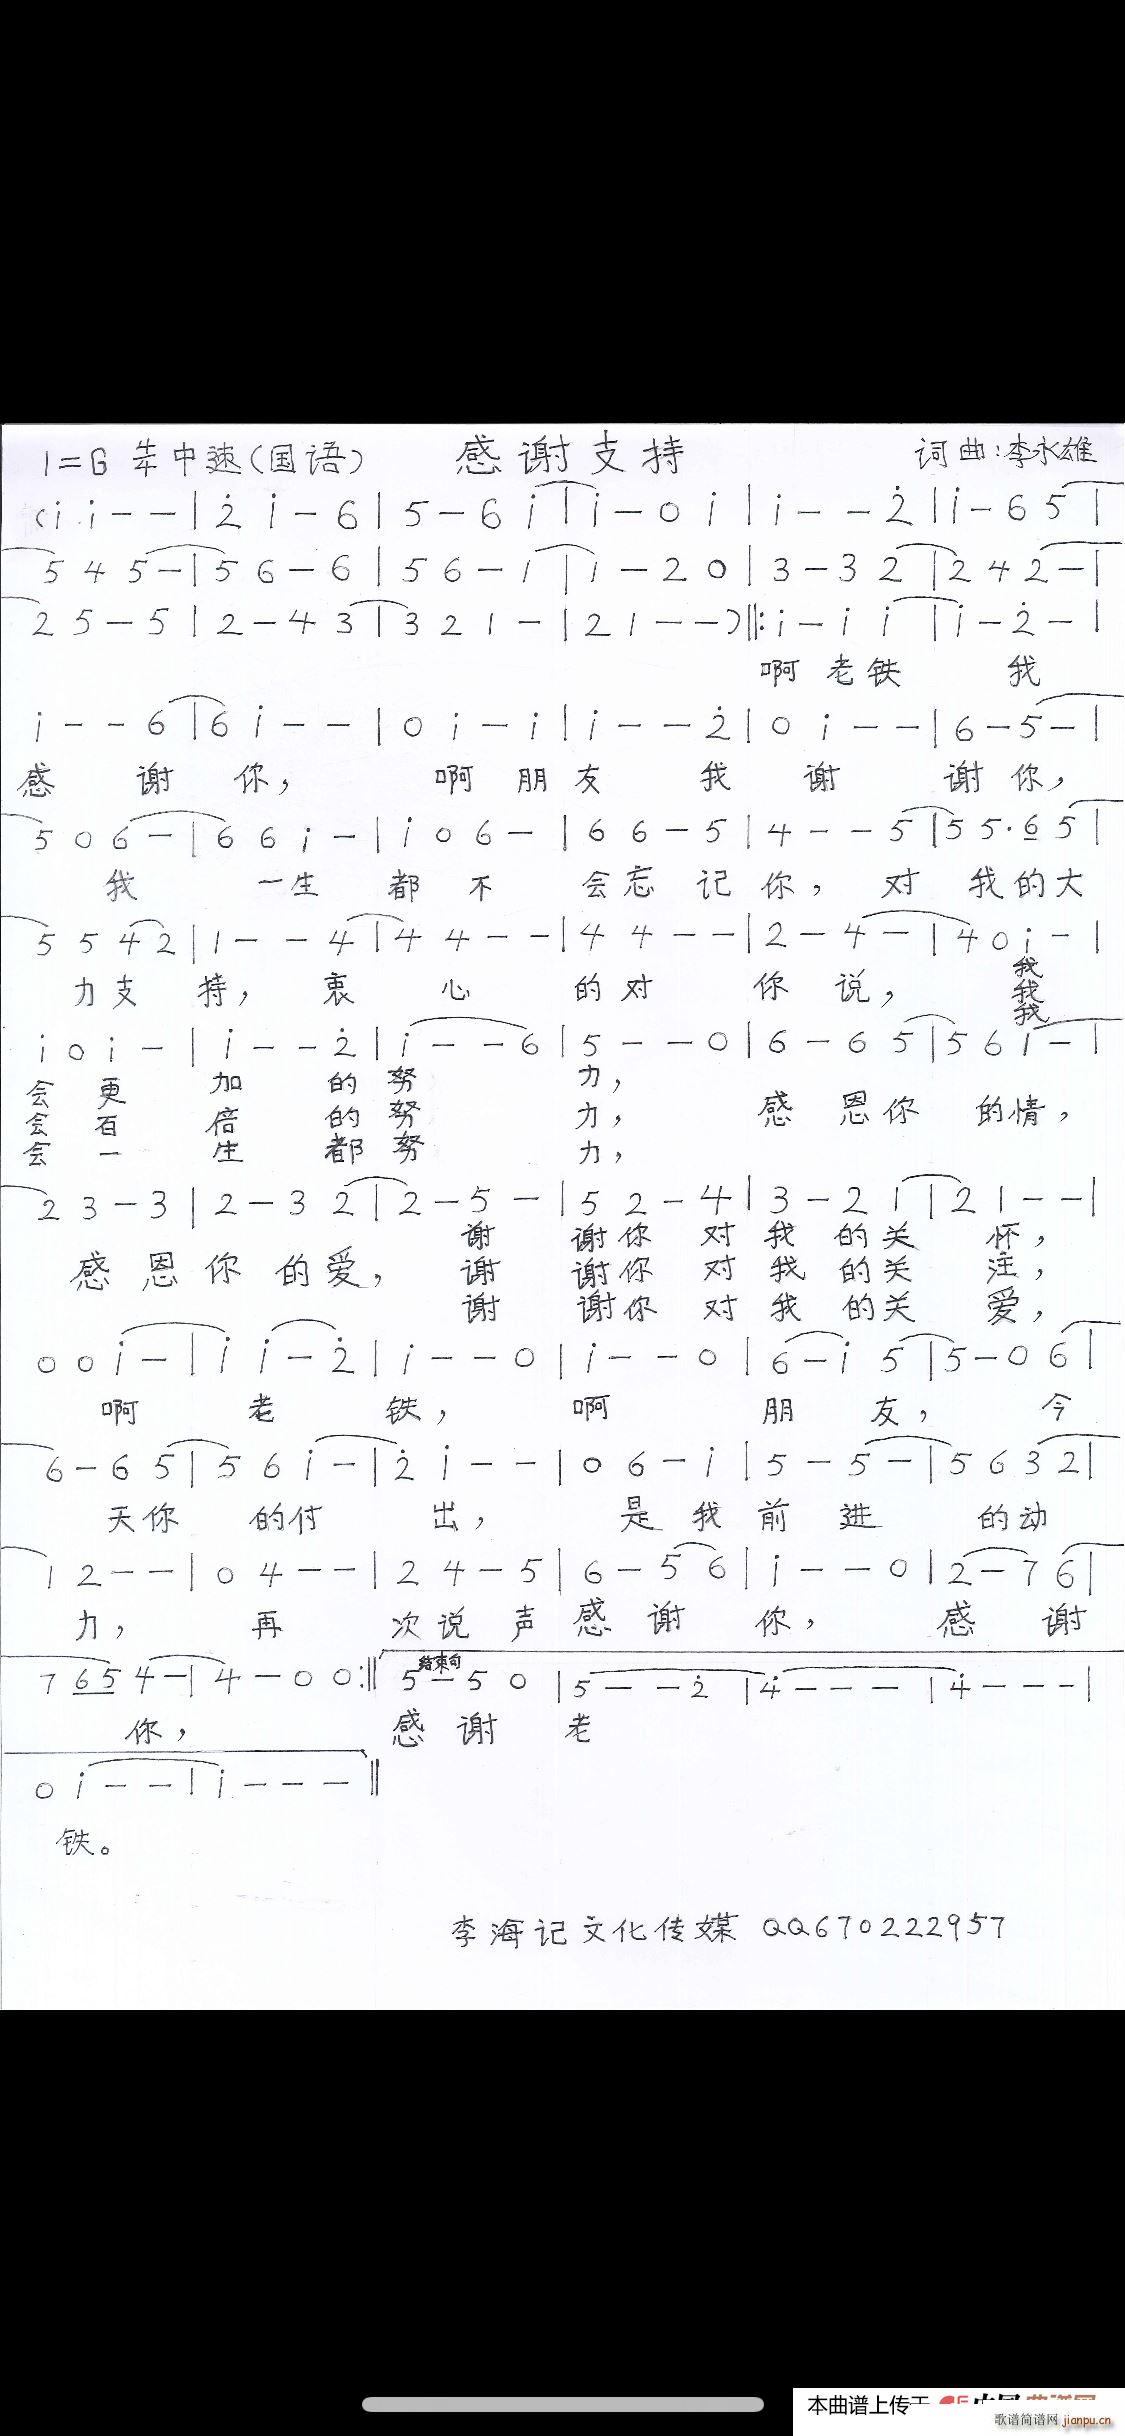 1=G 4/4 中速(国语) 感谢支持 词曲:李永雄
(i i - - | 2̇ i - 6 | 5 - 6 i | i - 0 i | i - - 2̇ | i - 6 5 |
5 4 5 - | 5 6 - 6 | 5 6 - 1 | 1 - 2 0 | 3 - 3 2 | 2 4 2 - |
2 5 - 5 | 2 - 4 3 | 3 2 1 - | 2 1 - - ) ‖: i - i i | i - 2̇ - |
啊 老 铁 我
i - - 6 | 6 i - - | 0 i - i | i - - 2̇ | 0 i - - | 6 - 5 - |
感 谢 你, 啊 朋 友 我 谢 谢 你,
5 0 6 - | 6 6 i - | i 0 6 - | 6 6 - 5 | 4 - - 5 | 5 5· 6 5 |
我 一 生 都 不 会 忘 记 你, 对 我 的 大
5 5 4 2 | 1 - - 4 | 4 4 - - | 4 4 - - | 2 - 4 - | 4 0 i - |
力 支 持, 衷 心 的 对 你 说, 我
我
我
i 0 i - | i - - 2̇ | i - - 6 | 5 - - 0 | 6 - 6 5 | 5 6 1 - |
会 更 加 的 努 力,
会 百 倍 的 努 力, 感 恩 你 的 情,
会 一 生 都 努 力,
2 3 - 3 | 2 - 3 2 | 2 - 5 - | 5 2 - 4 | 3 - 2 1 | 2 1 - - |
谢 谢 你 对 我 的 关 怀,
感 恩 你 的 爱, 谢 谢 你 对 我 的 关 注,
谢 谢 你 对 我 的 关 爱,
0 0 i - | i i - 2̇ | i - - 0 | i - - 0 | 6 - i 5 | 5 - 0 6 |
啊 老 铁, 啊 朋 友, 今
6 - 6 5 | 5 6 i - | 2̇ i - - | 0 6 - i | 5 - 5 - | 5 6 3 2 |
天 你 的 付 出, 是 我 前 进 的 动
1 2 - - | 0 4 - - | 2 4 - 5 | 6 - 5 6 | i - - 0 | 2 - 7 6 |
力, 再 次 说 声 感 谢 你, 感 谢
7 6 5 4 - | 4 - 0 0 :‖ 结束句 5 - 5 0 | 5 - - 2̇ | 4̇ - - - | 4̇ - - - |
你, 感 谢 老
0 i - - | i - - - ‖
铁。
李海记文化传媒 QQ670222957
本曲谱上传于
歌谱简谱网 jianpu.cn